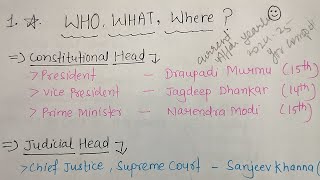 1. ☆. WHO. WHAT, Where ?
current
valid years
2024-25
for compt.
=) Constitutional Head ↓
> President - Draupadi Murmu (15th)
> Vice President - Jagdeep Dhankar (14th)
> Prime Minister - Narendra Modi (15th)
=) Judicial Head ↓
> Chief Justice, Supreme Court - Sanjeev Khanna (